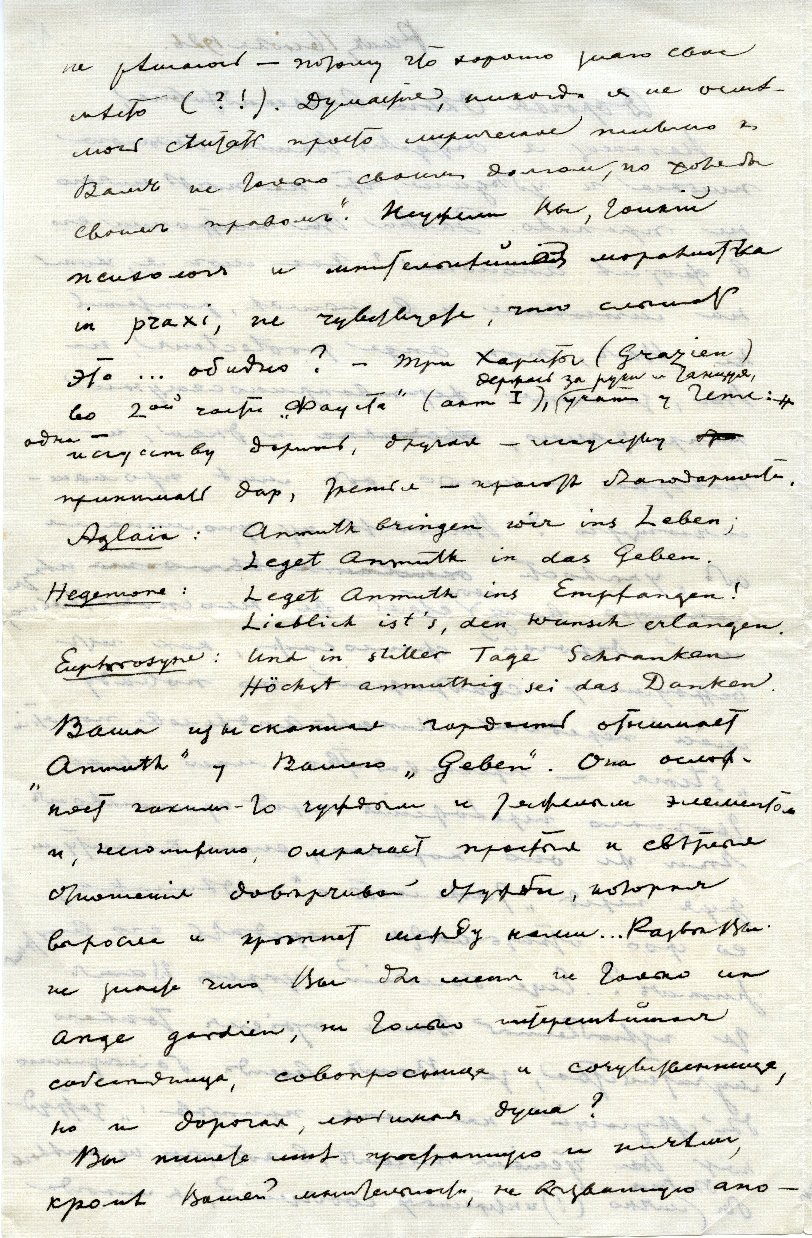 не рѣшалась — потому что хорошо знаю свое
мѣсто (?!). Думаете, никогда я не осмѣ-
считать просто лирическое письмо к
Вамъ не только своимъ долгом, но хотя бы
своимъ правомъ". Неужели Вы, тонкій
психологъ и моралистка
in praxi, не чувствуете, что слышать
это ... обидно? — Три Хариты (Grazien)
держась за руки и танцуя,
во 2ой части „Фауста" (акт I), учат у Гете:
одна —
искусству дарить, другая — искусству
принимать дар, третья — благодарности.
Aglaia: Anmuth bringen wir ins Leben;
Leget Anmuth in das Geben.
Hegemone: Leget Anmuth ins Empfangen!
Lieblich ist's, den Wunsch erlangen.
Euphrosyne: Und in stiller Tage Schranken
Höchst anmuthig sei das Danken.
Ваша изысканная гордость отнимает
„Anmuth" у Вашего „Geben". Она ослож-
няет каким-то чуждым и тяжелым элементом
и, омрачает простыя и свѣтлыя
отношенія довѣрчивой дружбы, которая
выросла и крѣпнет между нами... Развѣ Вы
не знаете что Вы для меня не только un
ange gardien, не только интереснѣйшая
собесѣдница, совопросница и сочувственница,
но и дорогая, любимая душа?
Вы пишете мнѣ пространную и ничѣм,
кромѣ Вашей мнительности, не вызванную апо-